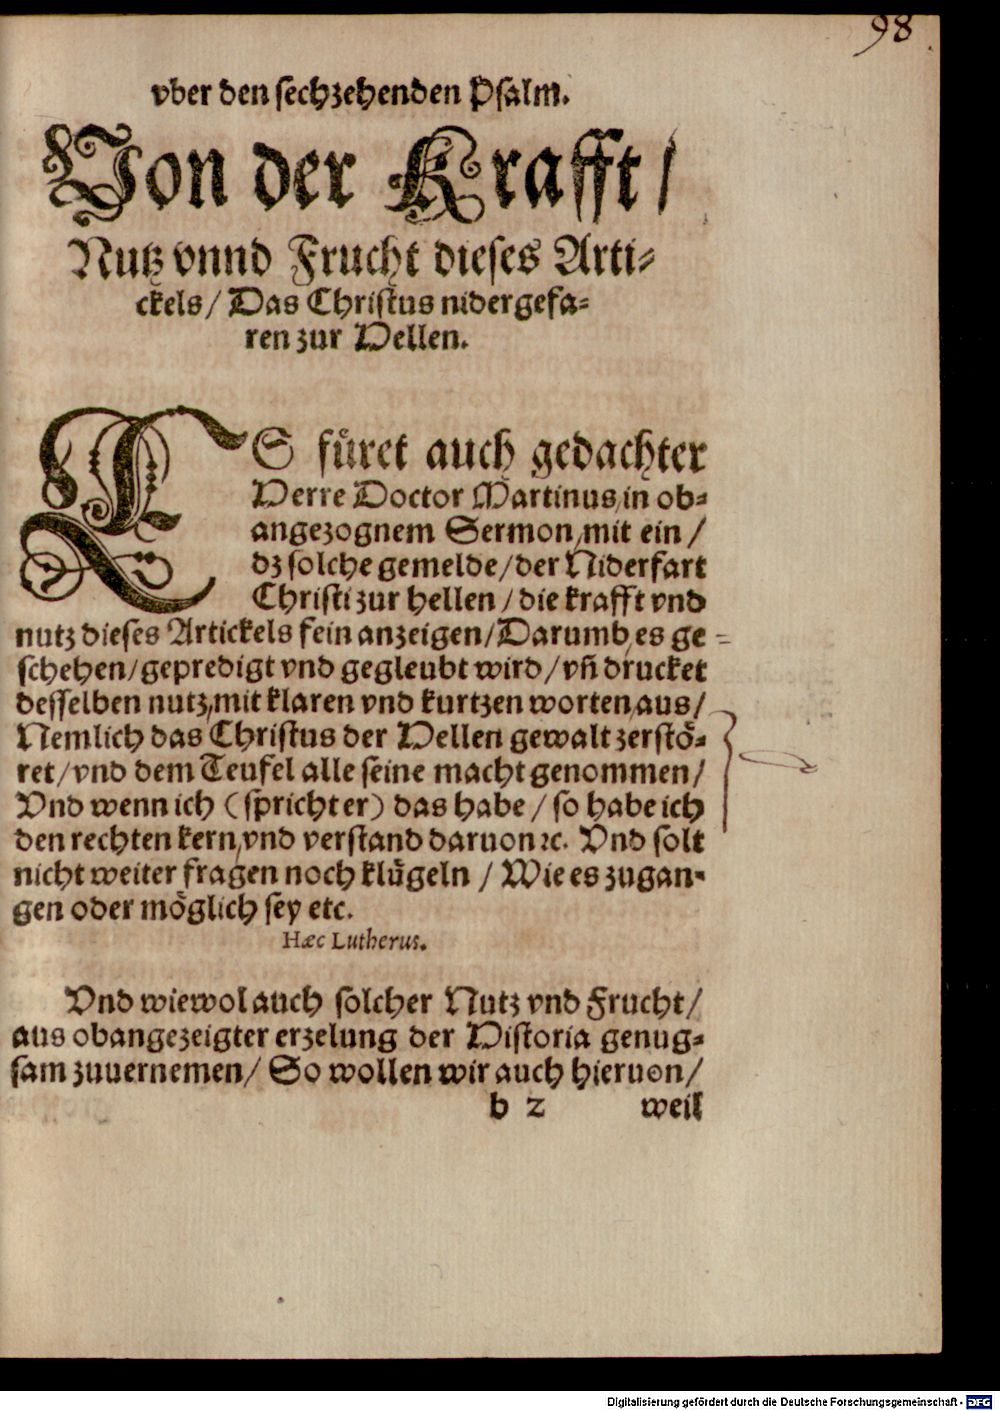 98
vber den sechzehenden Psalm.
Von der Krafft /
Nutz vnnd Frucht dieses Arti⸗
ckels / Das Christus nidergefa⸗
ren zur Hellen.
ES füret auch gedachter
Herre Doctor Martinus / in ob⸗
angezognem Sermon / mit ein /
dz solche gemelde / der Niderfart
Christi zur hellen / die krafft vnd
nutz dieses Artickels fein anzeigen / Darumb / es ge⸗
schehen / gepredigt vnd gegleubt wird / vn̄ drucket
desselben nutz / mit klaren vnd kurtzen worten / aus /
Nemlich das Christus der Hellen gewalt zerstö⸗
ret / vnd dem Teufel alle seine macht genommen /
Vnd wenn ich ( spricht er ) das habe / so habe ich
den rechten kern / vnd verstand daruon ꝛc. Vnd solt
nicht weiter fragen noch klügeln / Wie es zugan⸗
gen oder möglich sey etc.
Hæc Lutherus.
Vnd wiewol auch solcher Nutz vnd Frucht /
aus obangezeigter erzelung der Historia genug⸗
sam zuuernemen / So wollen wir auch hieruon /
b 2 weil
Digitalisierung gefördert durch die Deutsche Forschungsgemeinschaft - DFG